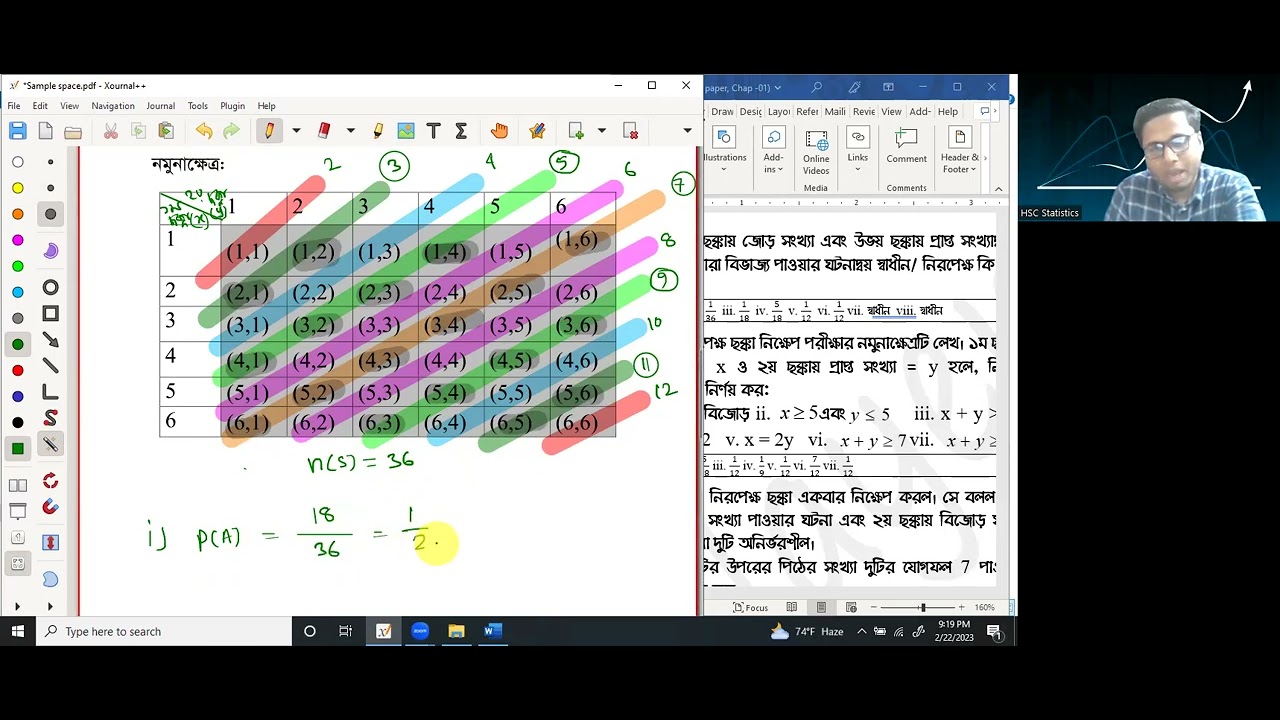 *Sample space.pdf - Xournal++
File Edit View Navigation Journal Tools Plugin Help
নমুনাক্ষেত্র:
2 ③ 4 ⑤ 6 ⑦
1 2 3 4 5 6
1 (1,1) (1,2) (1,3) (1,4) (1,5) (1,6) 8
2 (2,1) (2,2) (2,3) (2,4) (2,5) (2,6) ⑨
3 (3,1) (3,2) (3,3) (3,4) (3,5) (3,6) 10
4 (4,1) (4,2) (4,3) (4,4) (4,5) (4,6) ⑪
5 (5,1) (5,2) (5,3) (5,4) (5,5) (5,6) 12
6 (6,1) (6,2) (6,3) (6,4) (6,5) (6,6)
n(S) = 36
i) P(A) = 18/36 = 1/2
paper, Chap -01)
Draw Desig Layo Refer Maili Revie View Add- Help
llustrations Add-ins Online Videos Links Comment Header & Footer
Media Comments
1 2 3
ছক্কায় জোড় সংখ্যা এবং উভয় ছক্কায় প্রাপ্ত সংখ্যা
রা বিভাজ্য পাওয়ার ঘটনাদ্বয় স্বাধীন/ নিরপেক্ষ কি
1/36 iii. 1/18 iv. 5/18 v. 1/12 vi. 1/12 vii. স্বাধীন viii. স্বাধীন
পক্ষ ছক্কা নিক্ষেপ পরীক্ষার নমুনাক্ষেত্রটি লেখ। ১ম ছ
x ও ২য় ছক্কায় প্রাপ্ত সংখ্যা = y হলে, নি
নির্ণয় কর:
বিজোড় ii. x ≥ 5 এবং y ≤ 5 iii. x + y >
2 v. x = 2y vi. x + y ≥ 7 vii. x + y ≥
/8 iii. 1/12 iv. 1/9 v. 1/12 vi. 7/12 vii. 1/12
নিরপেক্ষ ছক্কা একবার নিক্ষেপ করল। সে বলল
সংখ্যা পাওয়ার ঘটনা এবং ২য় ছক্কায় বিজোড় স
া দুটি অনির্ভরশীল।
টির উপরের পিঠের সংখ্যা দুটির যোগফল 7 পাও
Focus 160%
HSC Statistics
Type here to search
74°F Haze 9:19 PM
2/22/2023